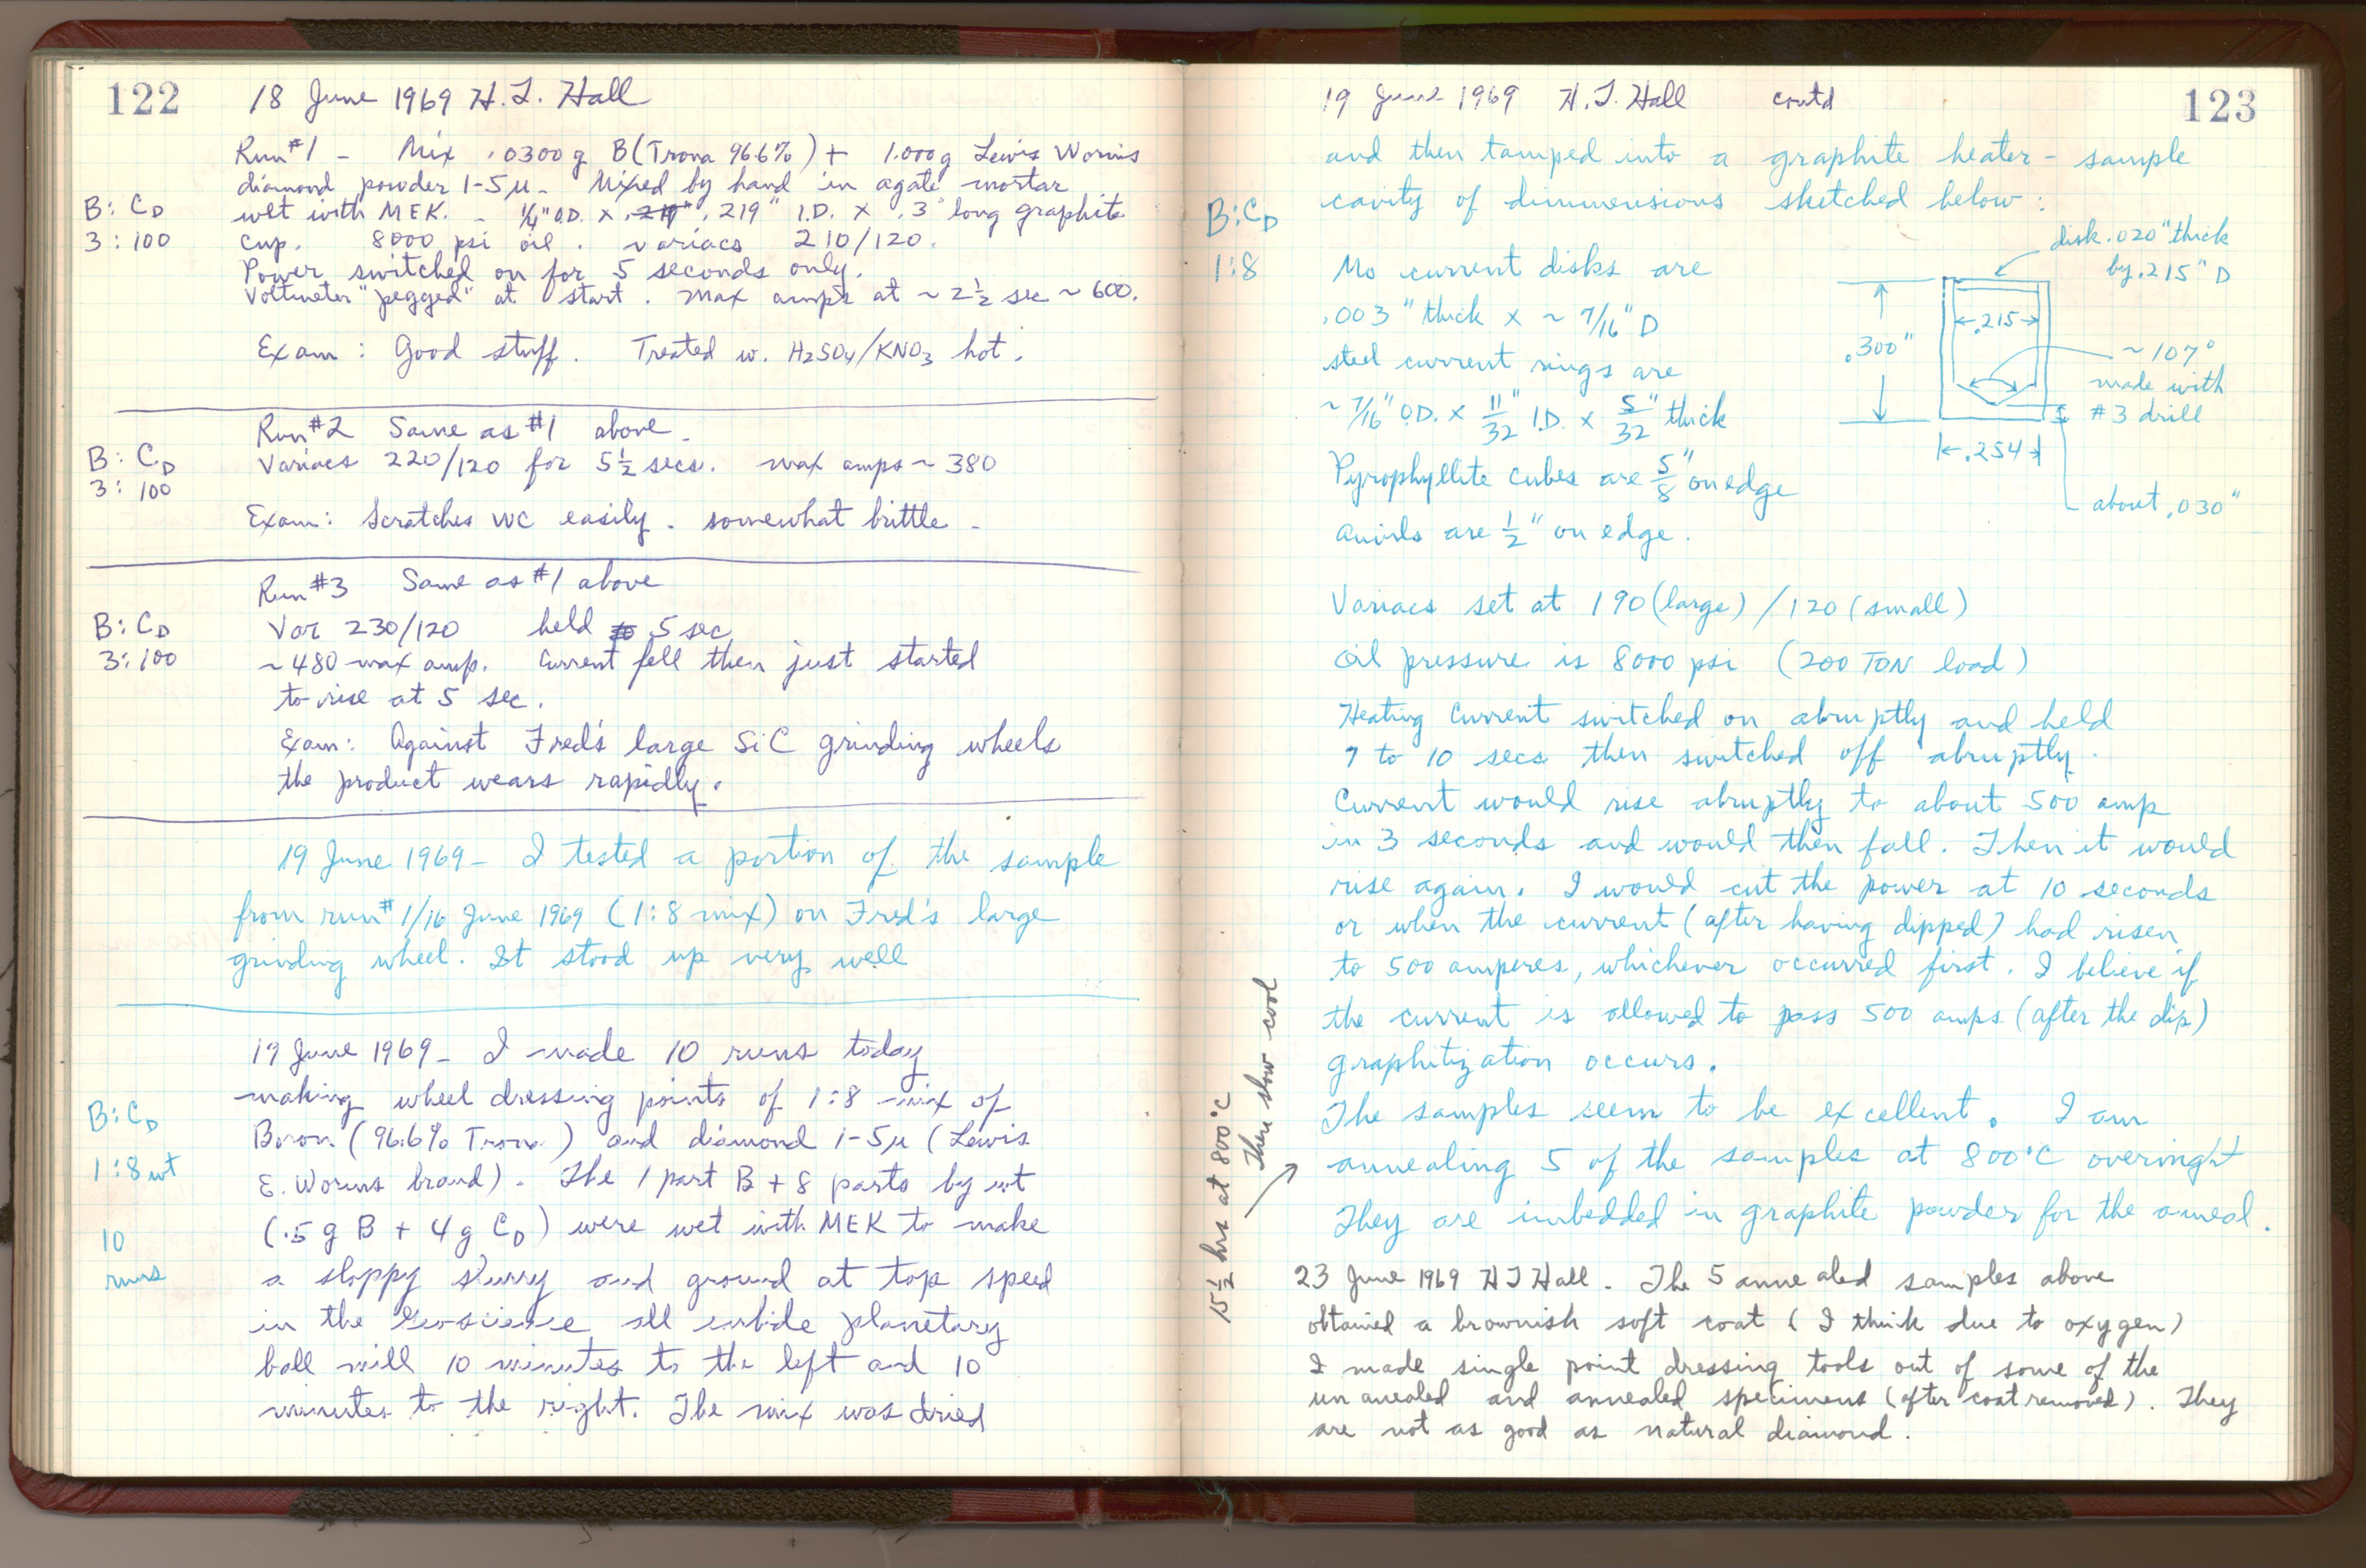 122
18 June 1969 H.T. Hall
Run #1 - Mix .0300 g B (Trona 96.6%) + 1.000 g Lewis Worms
diamond powder 1-5μ - Mixed by hand in agate mortar
B:C_D
wet with MEK. - 1/4" O.D. x .219" I.D. x .3" long graphite
3:100
cup. 8000 psi oil. variacs 210/120.
Power switched on for 5 seconds only.
Voltmeter "pegged" at start. Max amps at ~ 2 1/2 sec ~ 600.
Exam: Good stuff. Treated w. H2SO4/KNO3 hot.
Run #2 Same as #1 above -
B:C_D
Variacs 220/120 for 5 1/2 secs. max amps ~ 380
3:100
Exam: Scratches WC easily. somewhat brittle -
Run #3 Same as #1 above
B:C_D
Var 230/120 held 5 sec
3:100
~ 480 max amp. Current fell then just started
to rise at 5 sec.
Exam: Against Fred's large SiC grinding wheels
the product wears rapidly.
19 June 1969 - I tested a portion of the sample
from run #1/16 June 1969 (1:8 mix) on Fred's large
grinding wheel. It stood up very well
19 June 1969 - I made 10 runs today
making wheel dressing points of 1:8 mix of
B:C_D
Boron (96.6% Trona) and diamond 1-5μ (Lewis
1:8 wt
E. Worms brand). The 1 part B + 8 parts by wt
(.5 g B + 4 g C_D) were wet with MEK to make
10
runs
a sloppy slurry and ground at top speed
in the Geoscience all carbide planetary
ball mill 10 minutes to the left and 10
minutes to the right. The mix was dried
123
19 June 1969 H.T. Hall contd
and then tamped into a graphite heater - sample
cavity of dimmensions sketched below:
B:C_D
1:8
disk .020" thick
by .215" D
Mo current disks are
.003" thick x ~ 7/16" D
.215
.300"
~ 107°
made with
#3 drill
steel current rings are
~ 7/16" O.D. x 11/32" I.D. x 5/32" thick
.254
Pyrophyllite cubes are 5/8" on edge
about .030"
Anvils are 1/2" on edge.
Variacs set at 190 (large) / 120 (small)
Oil pressure is 8000 psi (200 TON load)
Heating Current switched on abruptly and held
7 to 10 secs then switched off abruptly.
Current would rise abruptly to about 500 amp
in 3 seconds and would then fall. Then it would
rise again. I would cut the power at 10 seconds
or when the current (after having dipped) had risen
to 500 amperes, whichever occurred first. I believe if
the current is allowed to pass 500 amps (after the dip)
graphitization occurs.
The samples seem to be excellent. I am
annealing 5 of the samples at 800°C overnight
They are imbedded in graphite powder for the aneal.
15 1/2 hrs at 800°C
Then slow cool
23 June 1969 H T Hall. The 5 annealed samples above
obtained a brownish soft coat (I think due to oxygen)
I made single point dressing tools out of some of the
unanealed and annealed specimens (after coat removed). They
are not as good as natural diamond.